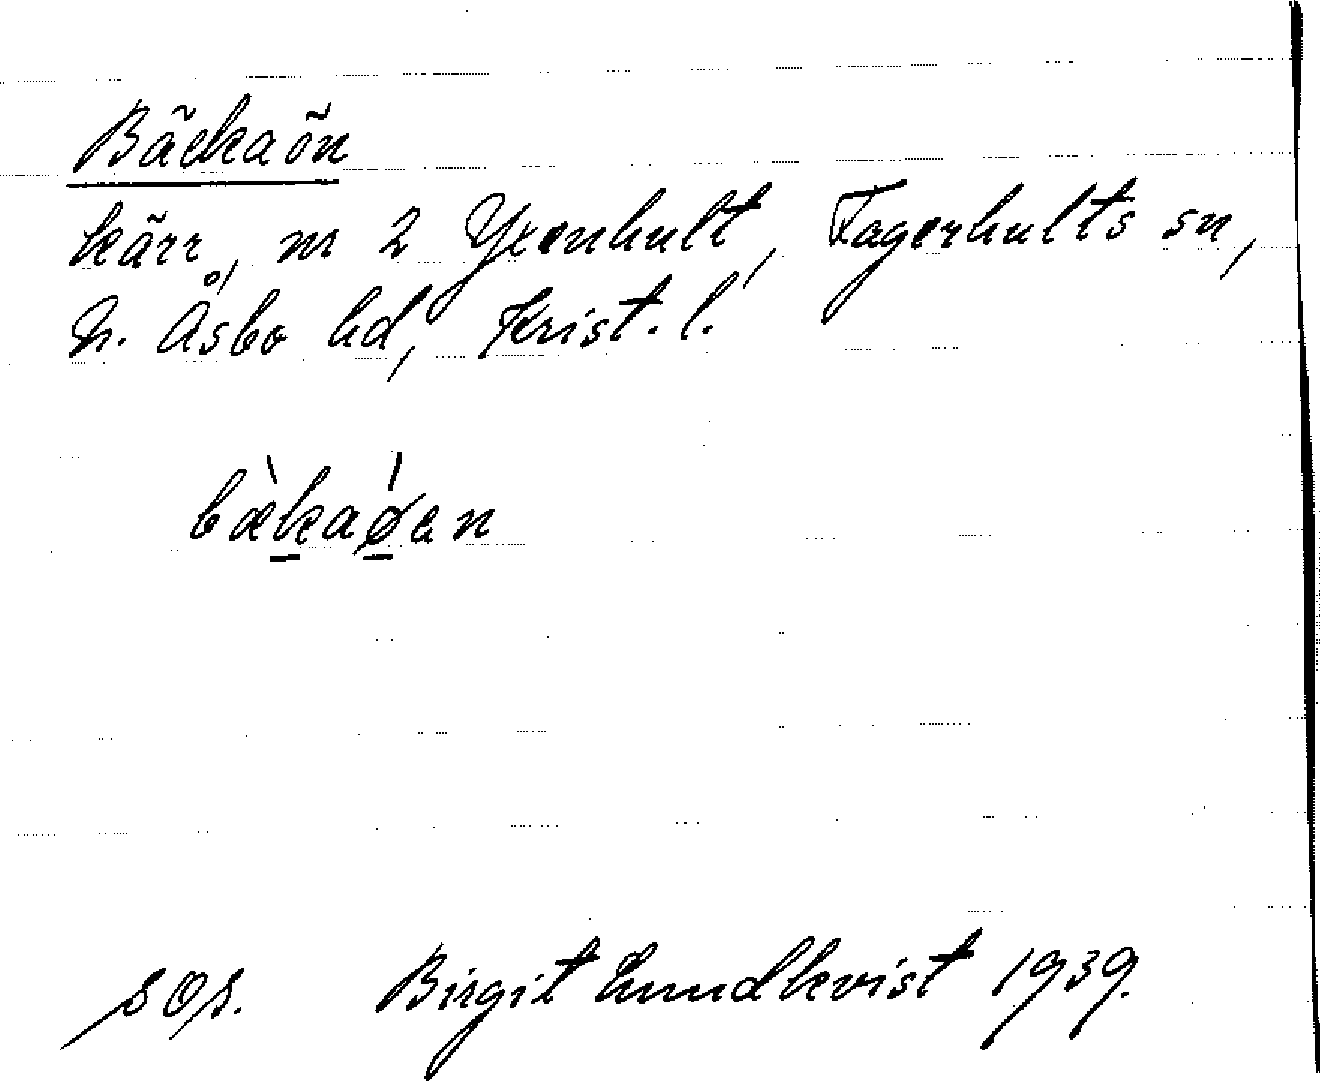 Bäckaön
kärr, nr 2 Yxenhult, Fagerhults sn,
N. Åsbo hd, Krist. l.
bæ̀ka̱ǿ̱en
sos. Birgit Lundkvist 1939.